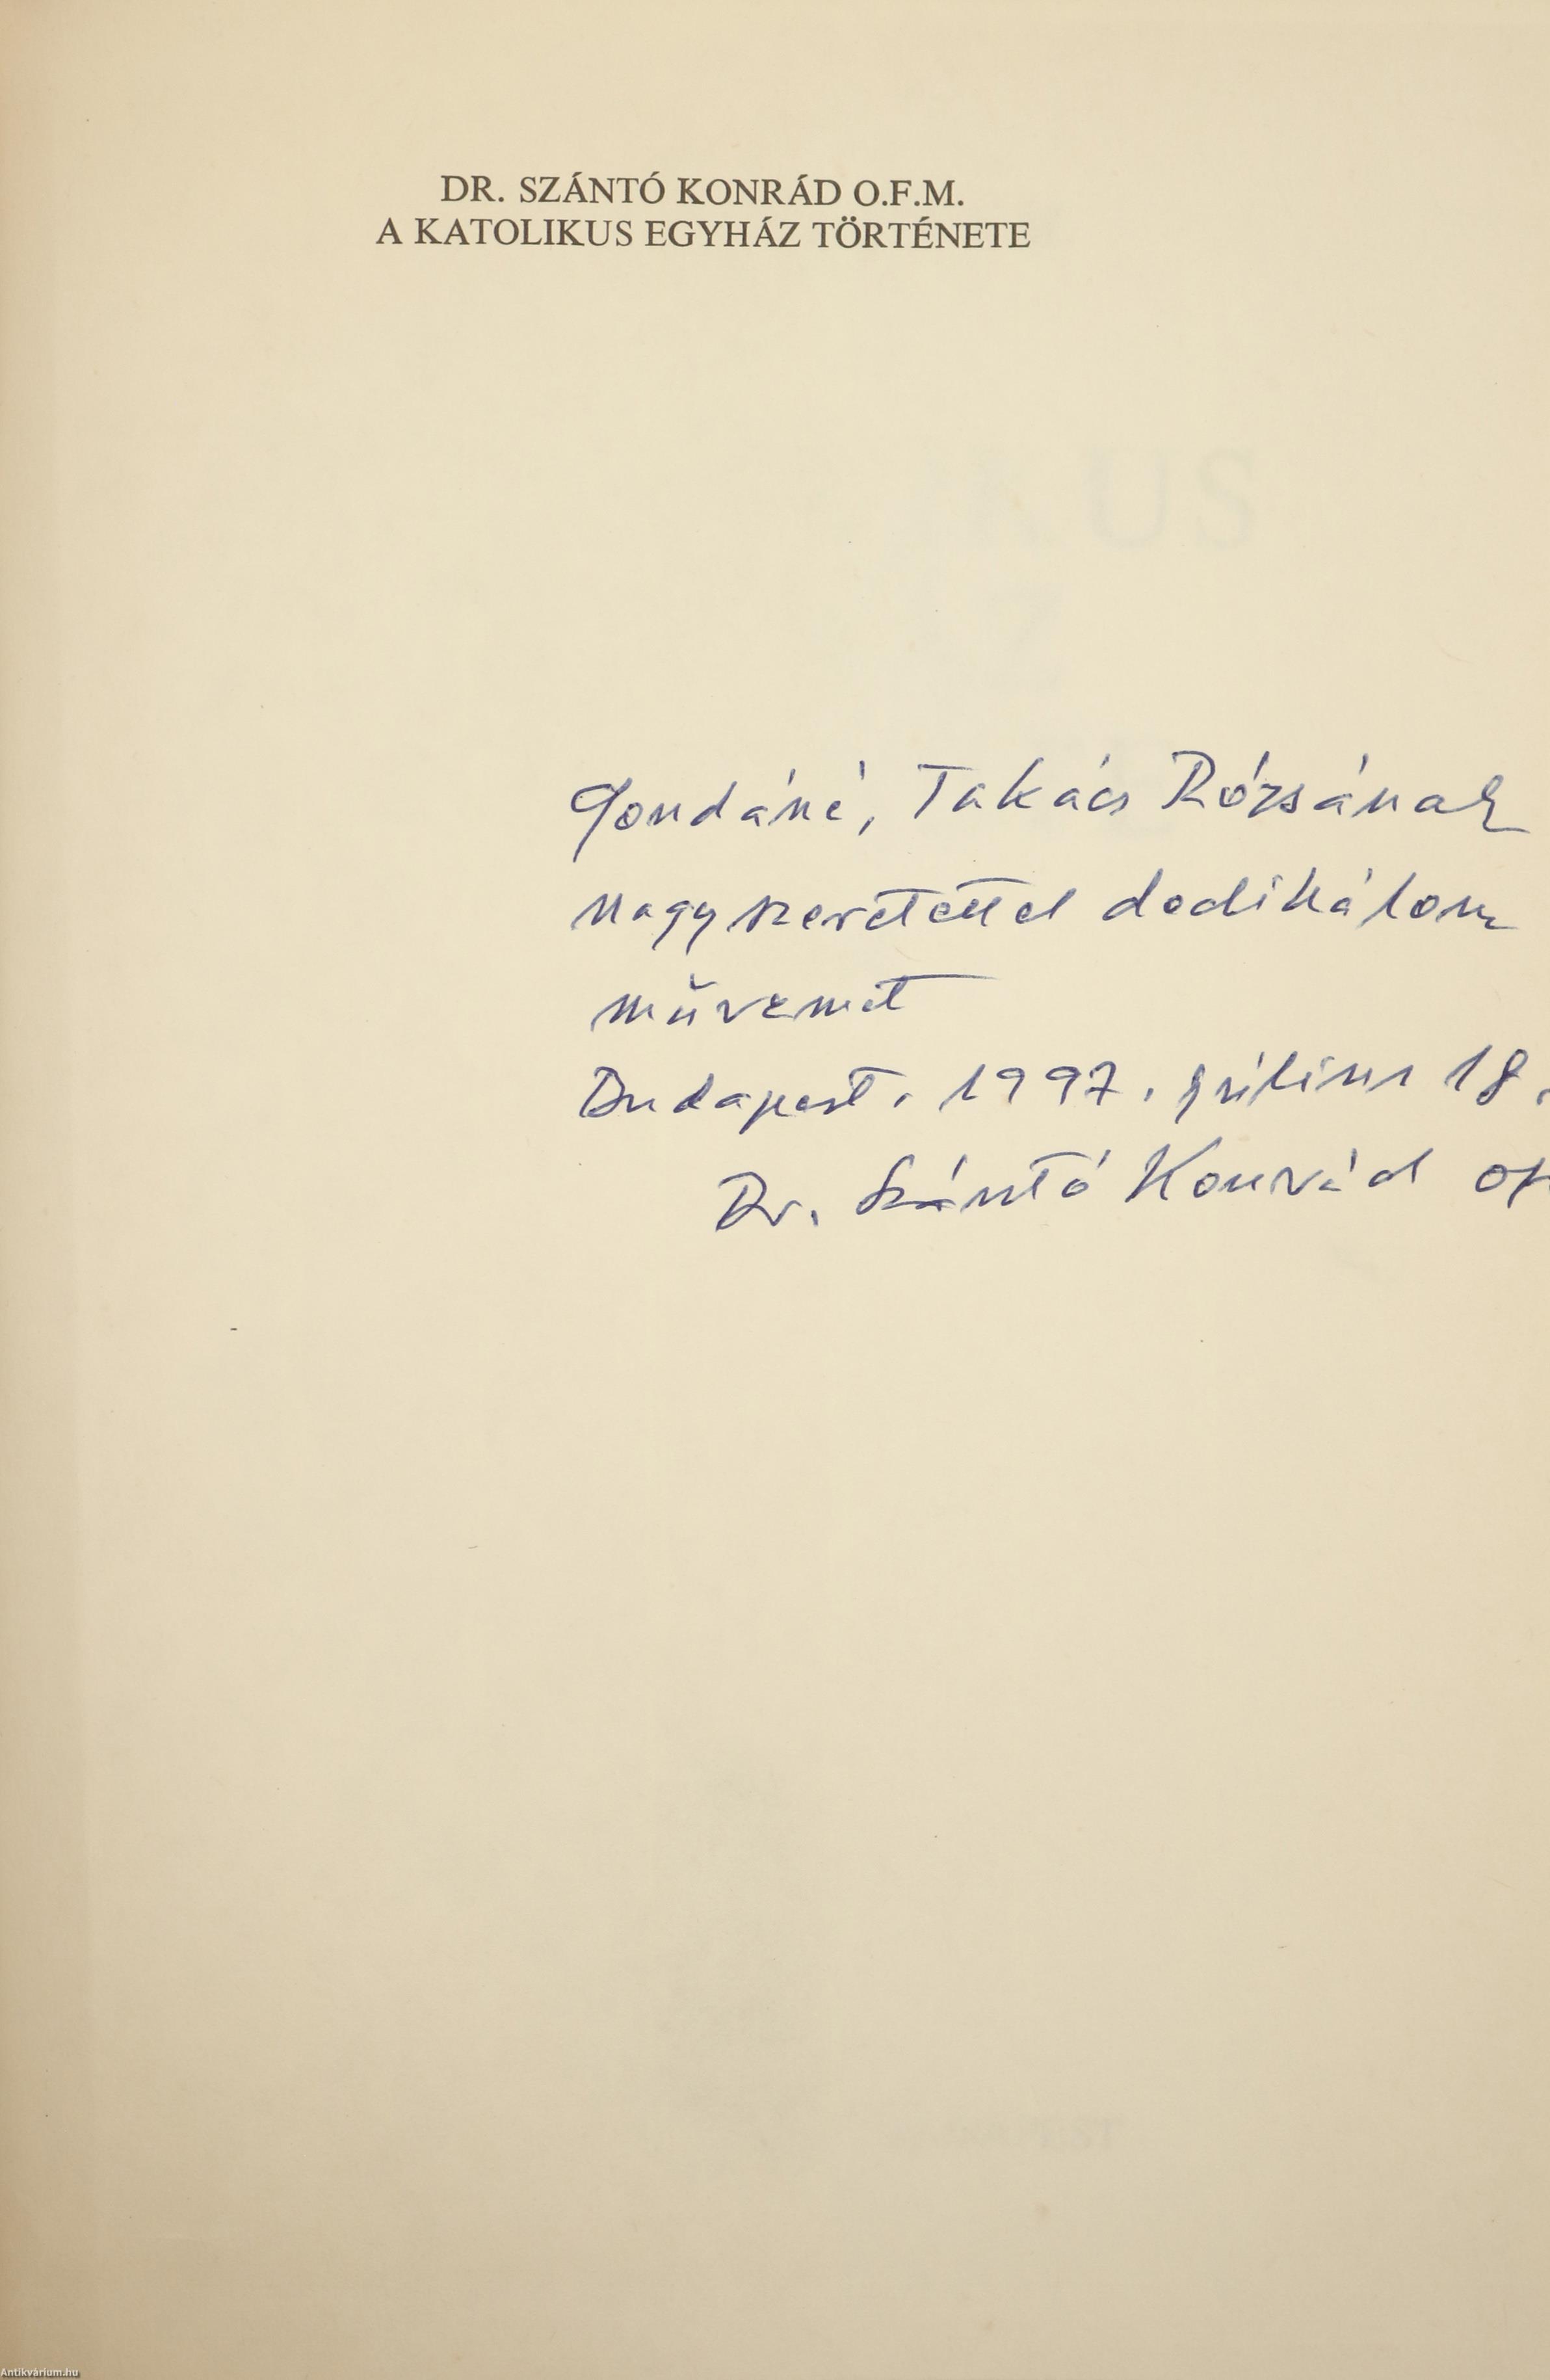 DR. SZÁNTÓ KONRÁD O.F.M.
A KATOLIKUS EGYHÁZ TÖRTÉNETE
Gondáné, Takács Rózsának
nagy szeretettel dedikálom
művemet
Budapest, 1997. július 18.
Dr. Szántó Konrád
Antikvárium.hu